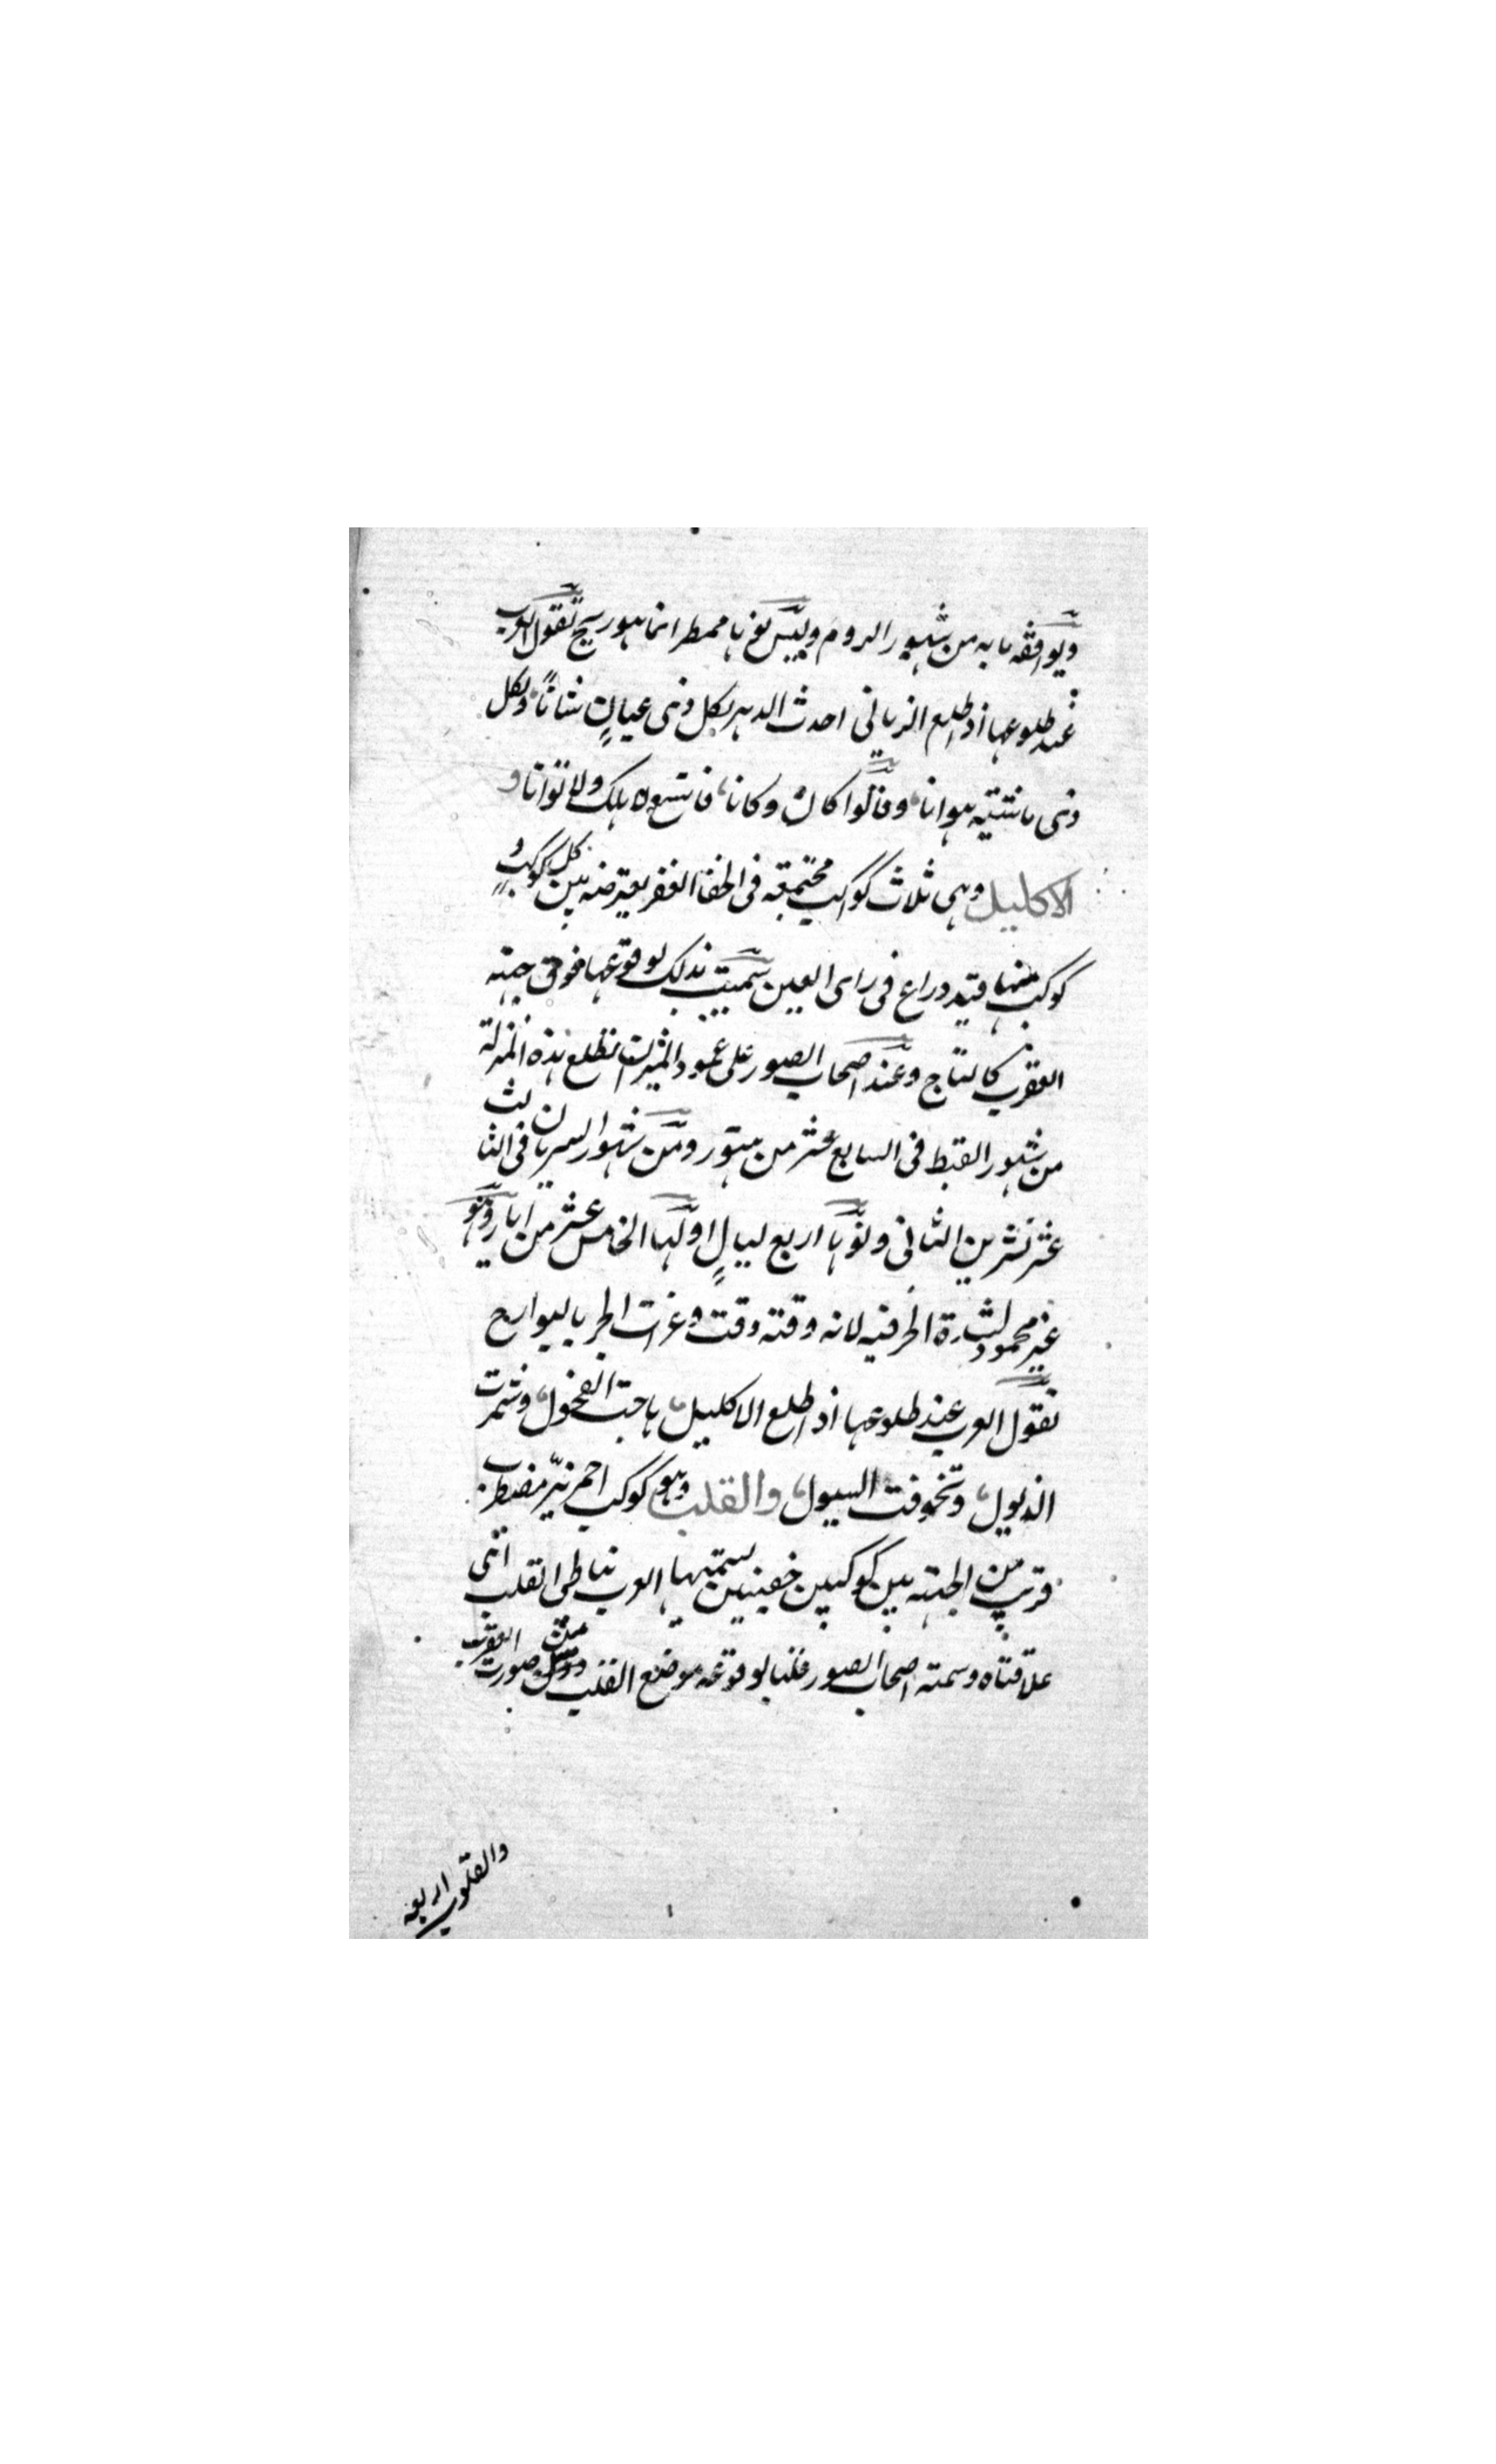 ويوافقه بابه من شهور الروم وليس نوها ممطر انما هو ريح تقول العرب
عند طلوعها اذ اطلع الزبانى احدث الدهر لكل ذى عيال شاناً ولكل
ذى ماشية هوانا وقالوا كان وكانا فاتسع لاهلك ولا توانا و
الاكليل وهى ثلاث كواكب مجتمعة فى الخفا الغفر معترضه بين كل كوكب و
كوكب منها قيد ذراع فى راى العين سميت بذلك لوقوعها فوق جبهة
العقرب كالتاج وعند اصحاب الصور على عمود الميزان تطلع هذه المنزلة
من شهور القبط فى السابع عشر من هتور ومن شهور السريان فى الثالث
عشر تشرين الثانى ونوها اربع ليالٍ اولها الخامس عشر من ايار ونوها
غير محمود لشارة الخرفيه لانه وقته وقت وغرات الحر بالبوارح
تقول العرب عند طلوعها اذ اطلع الاكليل هاجت الفحول وشمرت
الذيول وتخوفت السيول والقلب وهو كوكب احمر نيّر مضطرب
قريب من الجبهة بين كوكبين خفيين تسميها العرب نياطى القلب اى
علاقتاه وسمته اصحاب الصور قلبا لوقوعه موضع القلب من صورت العقرب
والقلوب اربعه